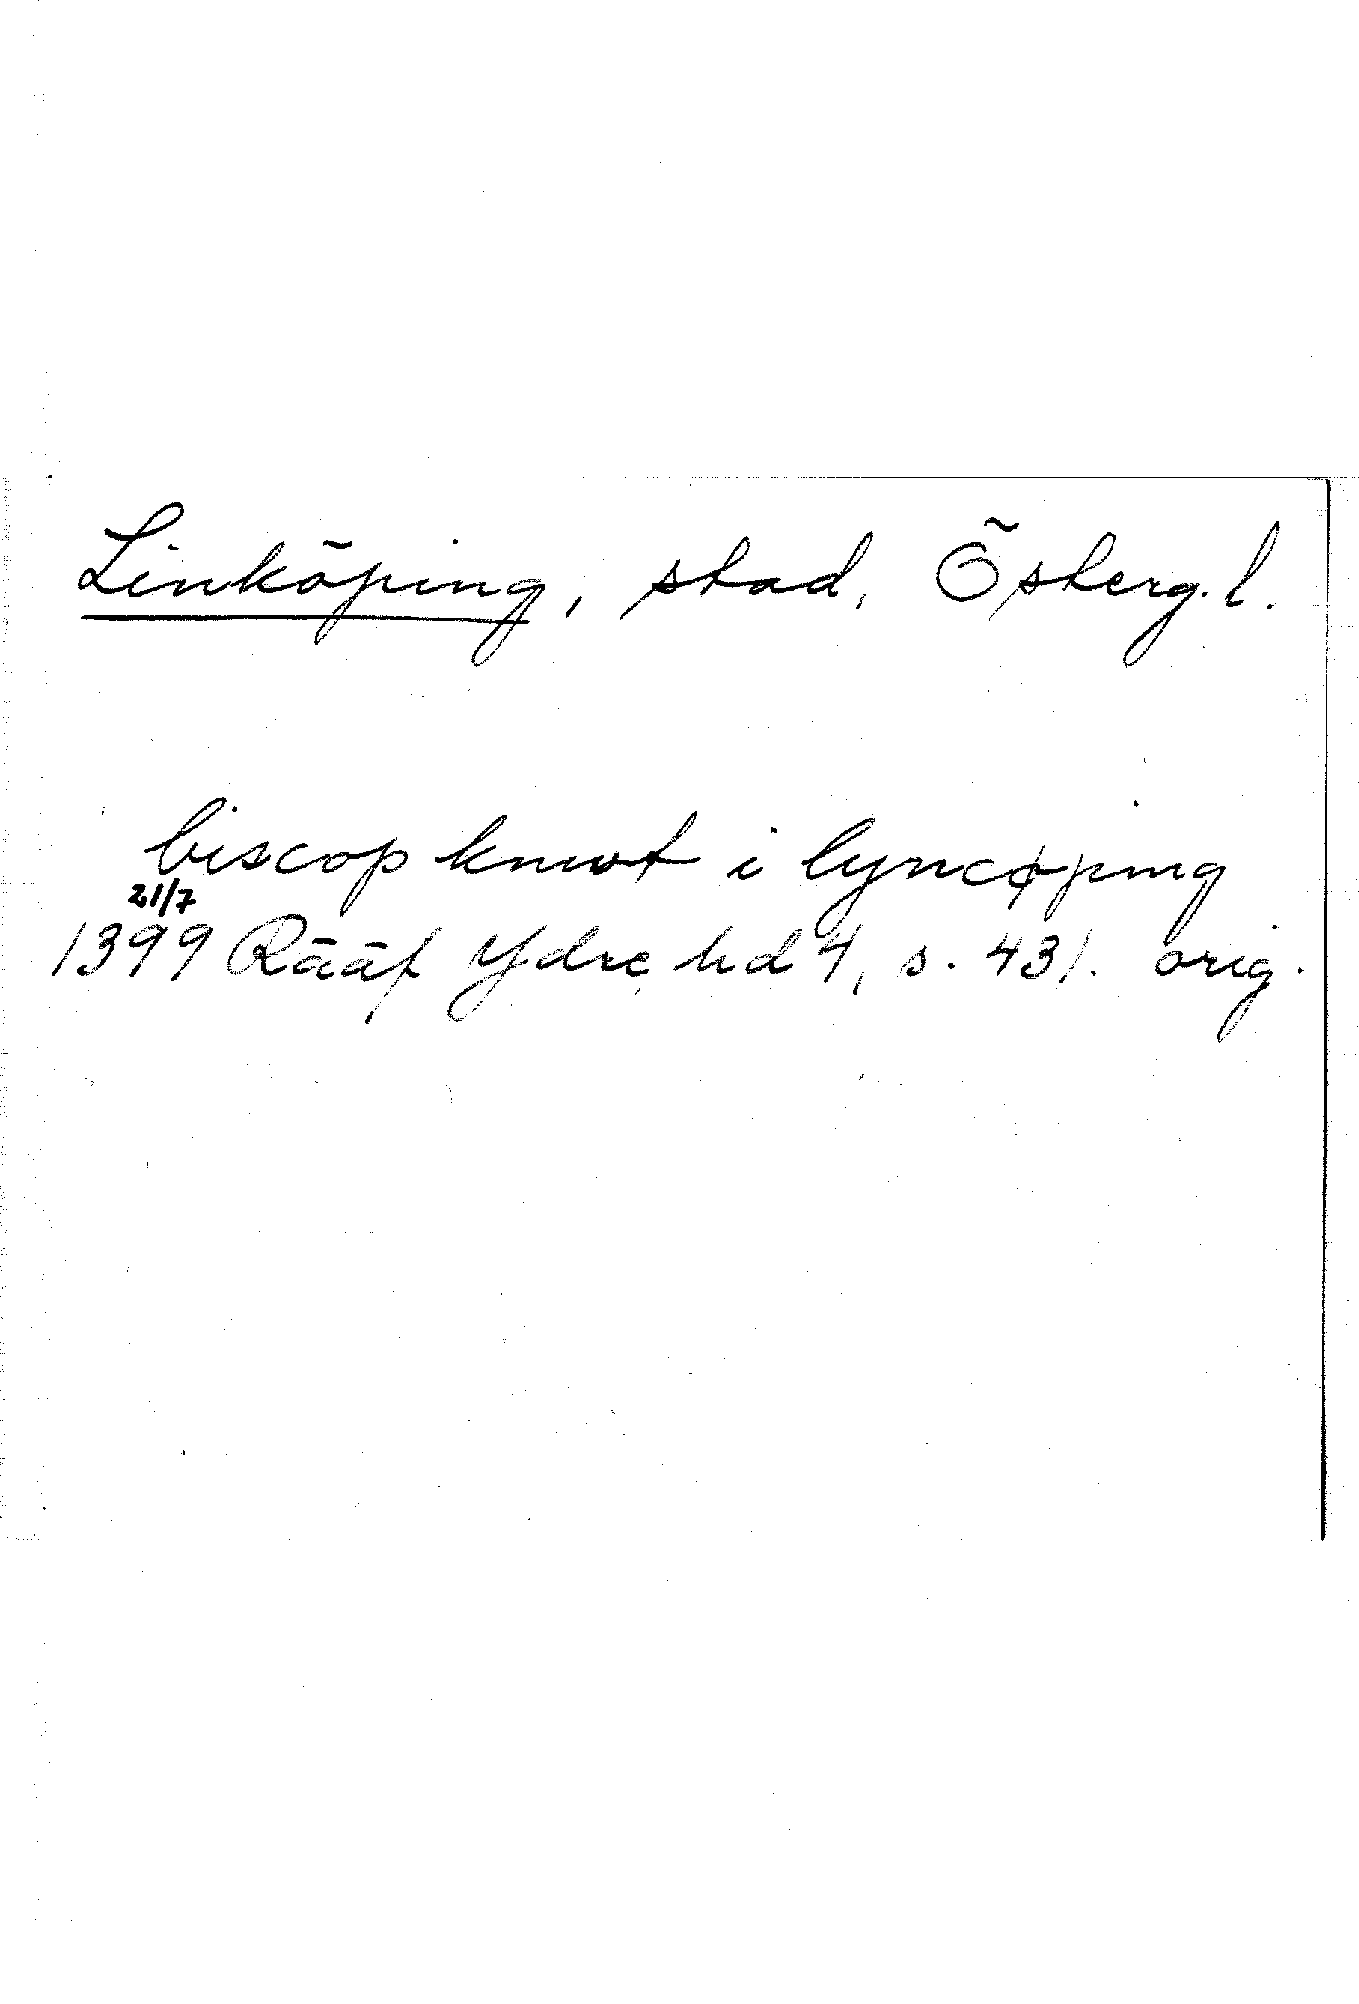 Linköping, stad, Österg. l.
biscop knwt i lyncøping
21/7
1399 Rääf Ydre hd 4, s. 431. orig.